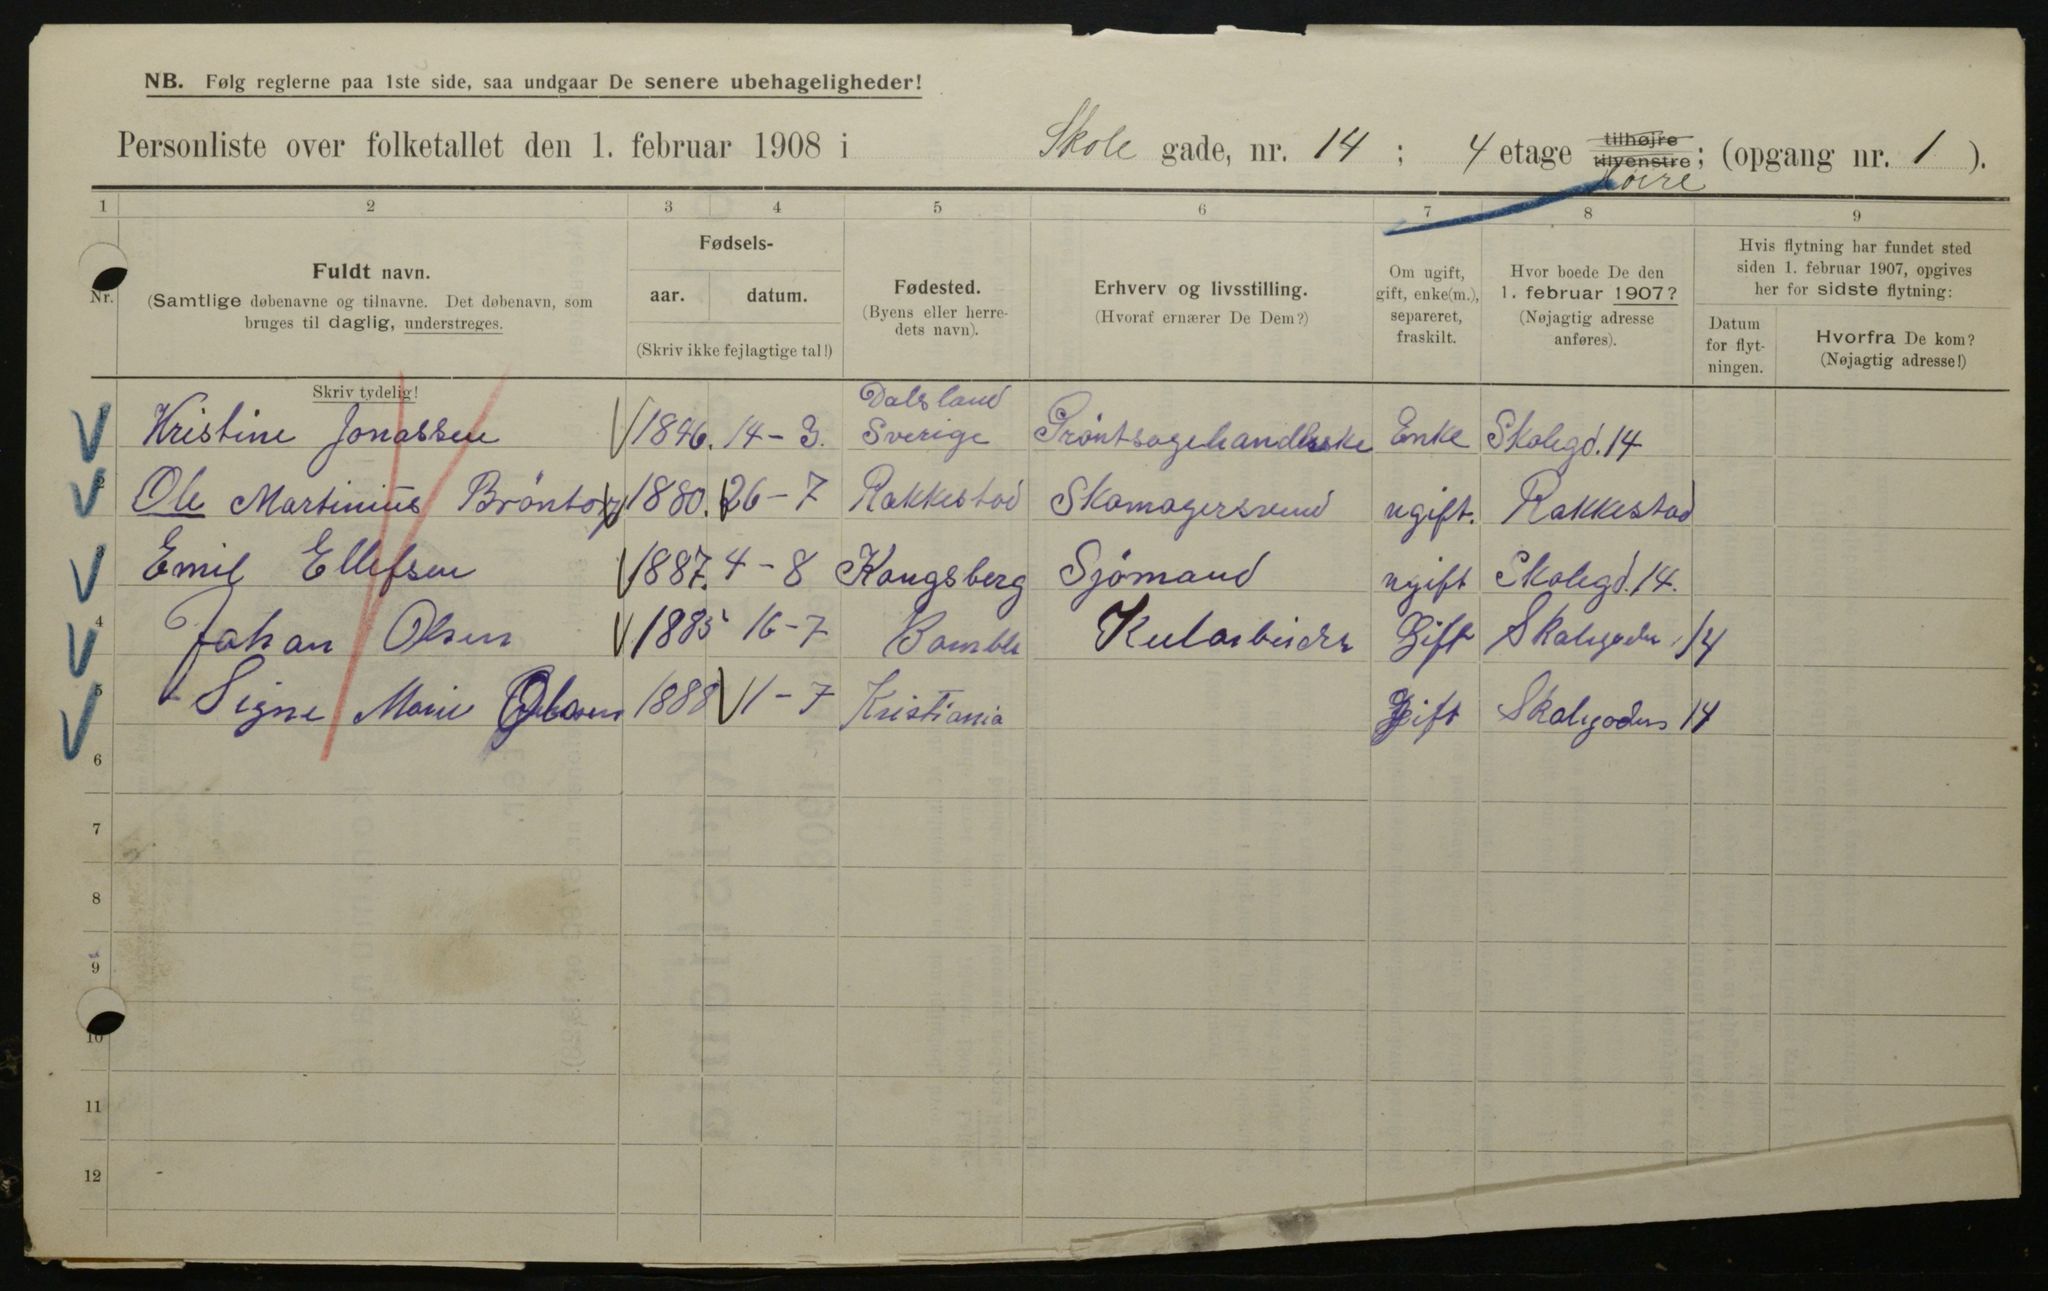 NB. Følg reglerne paa 1ste side, saa undgaar De senere ubehageligheder!
Personliste over folketallet den 1. februar 1908 i Skole gade, nr. 14 ; 4 etage tilhøjre tilvenstre ; (opgang nr. 1 ).
Høire
1 2 3 4 5 6 7 8 9
Nr.
Fuldt navn.
(Samtlige døbenavne og tilnavne. Det døbenavn, som
bruges til daglig, understreges.
Fødsels-
aar. datum.
(Skriv ikke fejlagtige tal!)
Fødested.
(Byens eller herre-
dets navn).
Erhverv og livsstilling.
(Hvoraf ernærer De Dem?)
Om ugift,
gift, enke(m.),
separeret,
fraskilt.
Hvor boede De den
1. februar 1907?
(Nøjagtig adresse
anføres).
Hvis flytning har fundet sted
siden 1. februar 1907, opgives
her for sidste flytning:
Datum
for flyt-
ningen.
Hvorfra De kom?
(Nøjagtig adresse!)
Skriv tydelig!
1 Kristine Jonassen 1846. 14-3. Dalsland Sverige Grøntsagehandlerske Enke Skolegd. 14
2 Ole Martinius 1880. 26-7 Rakkestad Skomagersvend ugift. Rakkestad
3 Emil Ellefsen 1887. 4-8 Kongsberg Sjömand ugift Skolegd. 14.
4 Johan Olsen 1885 16-7 Bamble Kularbeider Gift Skolegaden 14
5 Signe Marie Olsen 1888 1-7 Kristiania Gift Skolegaden 14
6
7
8
9
10
11
12